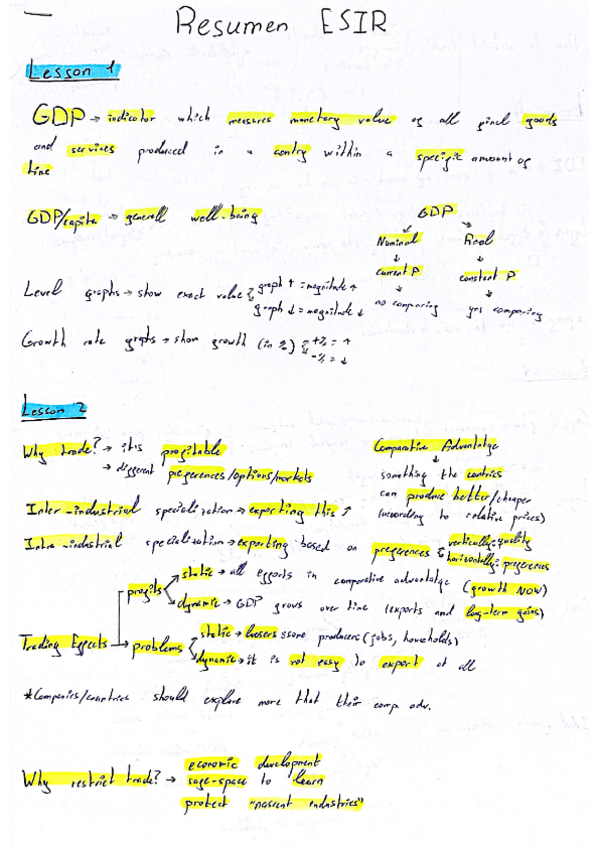 Resumen ESIR
Lesson 1
GDP → indicator which measures monetary value of all final goods
and services produced in a contry within a specific amount of
time
GDP/capita → generall well-being
GDP
Nominal Real
current P constant P
no comparing yes comparing
Level graphs → show exact value graph ↑ = magnitude ↑
graph ↓ = magnitude ↓
Growth rate graphs → show growth (in %) +% = ↑
-% = ↓
Lesson 2
Why trade? → it is profitable
→ different preferences/options/markets
Comparative Advantatge
something the contries
can produce better/cheaper
(according to relative prices)
Inter-industrial specialization → exporting this ↑
Intra-industrial specialization → exporting based on preferences vertically: quality
horizontally: preferences
Trading Effects
profits
static → all efforts in comparative advantatge (growth NOW)
dynamic → GDP grows over time (exports and long-term gains)
problems
static → loosers: some producers (jobs, households)
dynamic → it is not easy to export at all
*Companies/countries should explore more that their comp adv.
Why restrict trade? → economic development
safe-space to learn
protect "nascent industries"